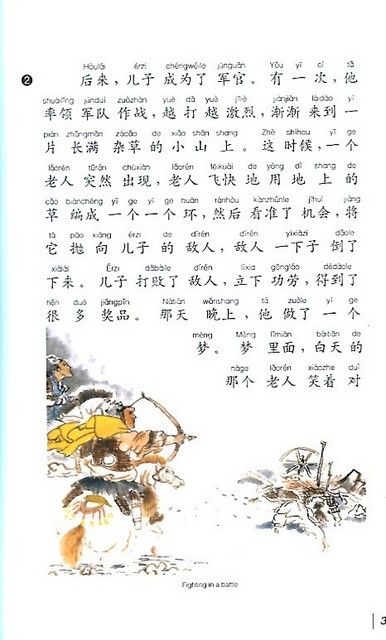 Hòulái érzi chéngwéile jūnguān. Yǒu yí cì tā
❷ 后来，儿子 成为了 军官。有 一 次，他
shuàilǐng jūnduì zuòzhàn yuè dǎ yuè jīliè jiànjiàn láidào yí
率领 军队 作战，越 打 越 激烈，渐渐 来到 一
piàn zhǎngmǎn zácǎo de xiǎo shān shang. Zhè shíhou yí ge
片 长满 杂草 的 小 山 上。这 时候，一个
lǎorén tūrán chūxiàn lǎorén fēikuài de yòng dì shang de
老人 突然 出现，老人 飞快 地 用 地 上 的
cǎo biānchéng yí ge yí ge huán ránhòu kànzhǔnle jīhuì jiāng
草 编成 一个 一个 环，然后 看准了 机会，将
tā pāo xiàng érzi de dírén dírén yíxiàzi dǎole
它 抛 向 儿子 的 敌人，敌人 一下子 倒了
xiàlái. Érzi dǎbàile dírén lìxià gōngláo dédàole
下来。儿子 打败了 敌人，立下 功劳，得到了
hěn duō jiǎngpǐn. Nàtiān wǎnshang tā zuòle yí ge
很 多 奖品。那天 晚上，他 做了 一个
mèng. Mèng lǐmiàn báitiān de
梦。梦 里面，白天 的
nàge lǎorén xiàozhe duì
那个 老人 笑着 对
Fighting in a battle
3